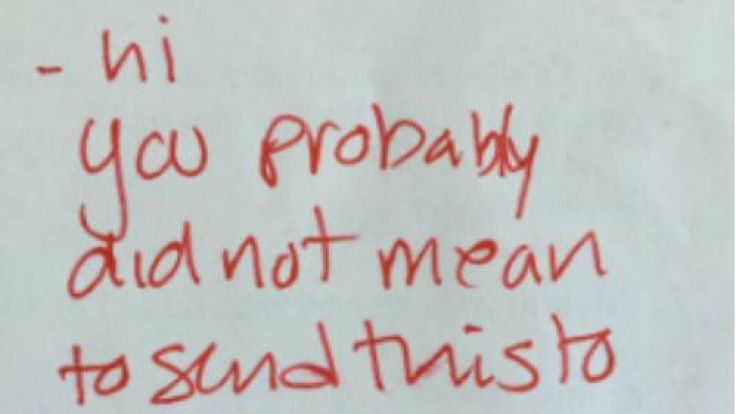 - hi
you probably
did not mean
to send this to